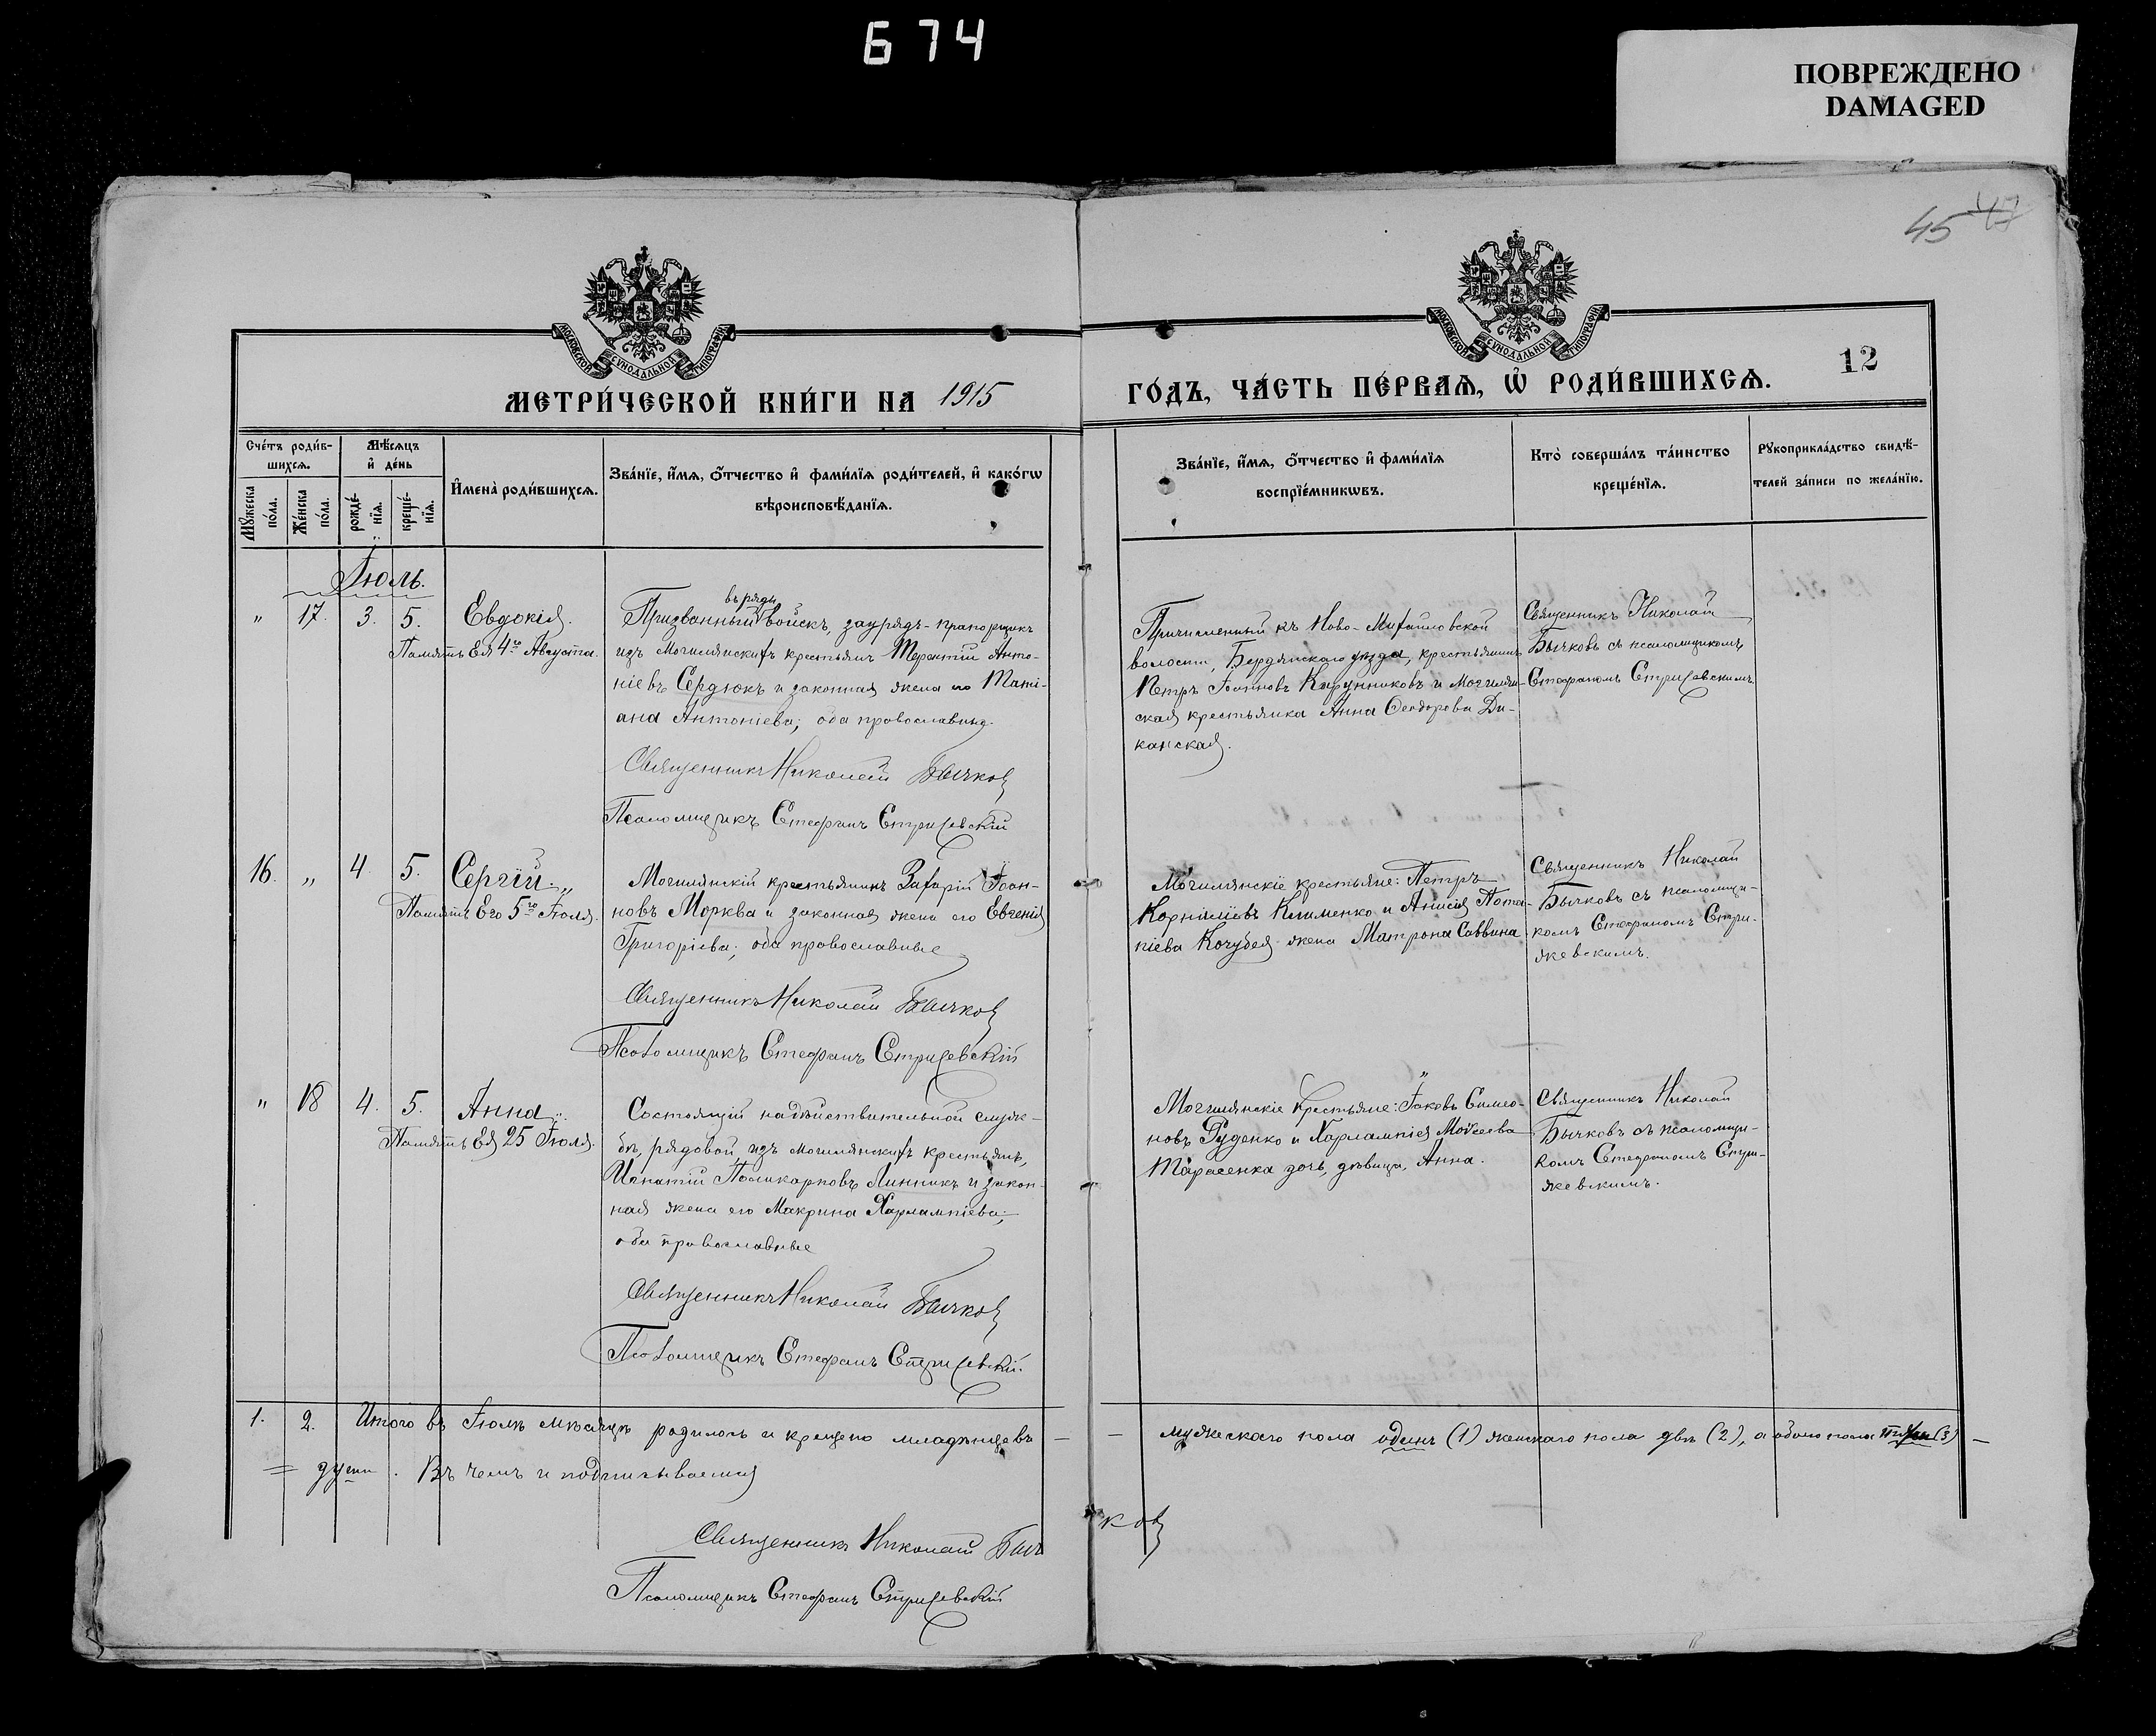 674
ПОВРЕЖДЕНО
DAMAGED
45 47
МОСКОВСКОЙ СѴНОДАЛЬНОЙ ТИПОГРАФІИ
МОСКОВСКОЙ СѴНОДАЛЬНОЙ ТИПОГРАФІИ
12
МЕТРИ́ЧЕСКОЙ КНИ́ГИ НА 1915
ГО́ДЪ, ЧА́СТЬ ПЕ́РВАѦ, Ѡ҆ РОДИ́ВШИХСѦ.
Сче́тъ роди́в-
шихсѧ.
Мꙋ́жеска
по́ла.
Же́нска
по́ла.
Мѣ́сѧцъ
и҆ де́нь
рожде́-
нїѧ.
креще́-
нїѧ.
И҆мена̀ роди́вшихсѧ.
Зва́нїе, и҆́мѧ, ѻ҆́тчество и҆ фами́лїѧ роди́телей, и҆ како́гѡ
вѣроисповѣ́данїѧ.
Зва́нїе, и҆́мѧ, ѻ҆́тчество и҆ фами́лїѧ
воспрїе́мникѡвъ.
Кто̀ соверша́лъ та́инство
креще́нїѧ.
Рꙋкоприкла́дство свидѣ́-
телей за́писи по жела́нїю.
Іюль.
" 17. 3. 5. Евдокія.
Память Ея 4го Августа.
въ ряды
Призванный войскъ, заурядъ-прапорщикъ
изъ Могилянскихъ крестьянъ Терентій Анто-
ніевъ Сердюкъ и законная жена его Таті-
ана Антоніева; оба православные.
Священникъ Николай Бычковъ
Псаломщикъ Стефанъ Стрижевскій
Причисленный къ Ново-Михайловской
волости, Бердянскаго уѣзда, крестьянинъ
Петръ Іоанновъ Кирунниковъ и Могилян-
ская крестьянка Анна Ѳеодорова Ди-
канская.
Священникъ Николай
Бычковъ съ псаломщикомъ
Стефаномъ Стрижевскимъ
16. " 4. 5. Сергій. "
Память Его 5го Іюля.
Могилянскій крестьянинъ Захарій Іоан-
новъ Морква и законная жена его Евгенія
Григоріева; оба православные
Священникъ Николай Бычковъ
Псаломщикъ Стефанъ Стрижевскій
Могилянскіе крестьяне: Петръ
Корниліевъ Клименко и Анисія Пота-
піева Кочубея жена Матрона Саввина
Священникъ Николай
Бычковъ съ псаломщи-
комъ Стефаномъ Стри-
жевскимъ.
" 18 4. 5. Анна.
Память Ея 25 Іюля.
Состоящій на дѣйствительной служ-
бѣ, рядовой изъ могилянскихъ крестьянъ,
Игнатій Поликарповъ Линникъ и закон-
ная жена его Макрина Харлампіева;
оба православные
Священникъ Николай Бычковъ
Псаломщикъ Стефанъ Стрижевскій.
Могилянскіе крестьяне: Іаковъ Симео-
новъ Руденко и Харлампія Моѵсеева
Тарасенка дочь, дѣвица, Анна.
Священникъ Николай
Бычковъ съ псаломщи-
комъ Стефаномъ Стри-
жевскимъ.
1. 2. Итого въ Іюлѣ мѣсяцѣ родилось и крещено младенцевъ — — мужескаго пола одинъ (1) женскаго пола двѣ (2), а обоего пола три (3) —
= души. Въ чемъ и подписываемся
Священникъ Николай Бычковъ
Псаломщикъ Стефанъ Стрижевскій